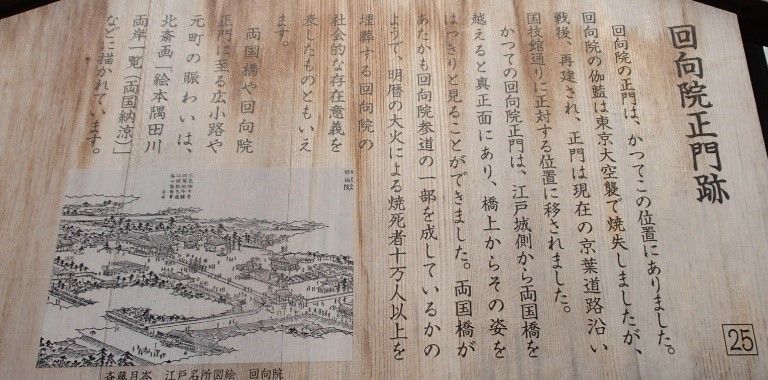 回向院正門跡
回向院の正門は、かつてこの位置にありました。
回向院の伽藍は東京大空襲で焼失しましたが、
戦後、再建され、正門は現在の京葉道路沿い
国技館通りに正対する位置に移されました。
かつての回向院正門は、江戸城側から両国橋を
越えると真正面にあり、橋上からその姿を
はっきりと見ることができました。両国橋が
あたかも回向院参道の一部を成しているかの
ようで、明暦の大火による焼死者十万人以上を
埋葬する回向院の
社会的な存在意義を
表したものともいえ
ます。
両国橋や回向院
正門に至る広小路や
元町の賑わいは、
北斎画「絵本隅田川
両岸一覧（両国納涼）」
などに描かれています。
回向院
斎藤月岑 江戸名所図絵 回向院
25